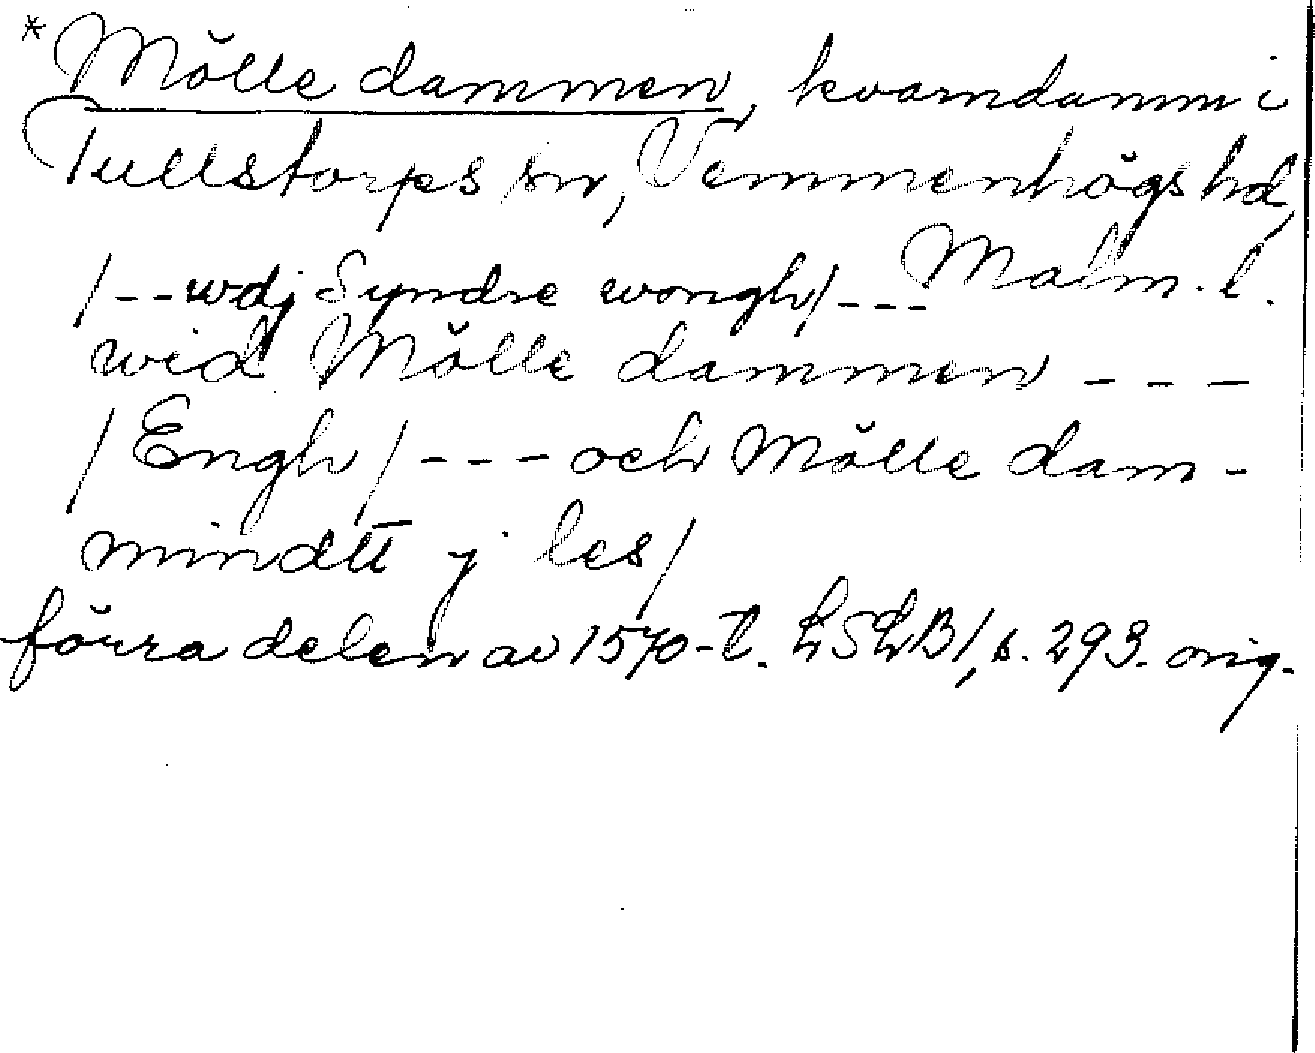 *Mölle dammen, kvarndamm i
Tullstorps sn, Vemmenhögs hd,
Malm. l.
/--wdj Syndre wongh/---
wid Mölle dammen ---
/Engh/---och Mölle dam-
mindtt j les/
förra delen av 1570-t. LSLB1, s. 293. orig.